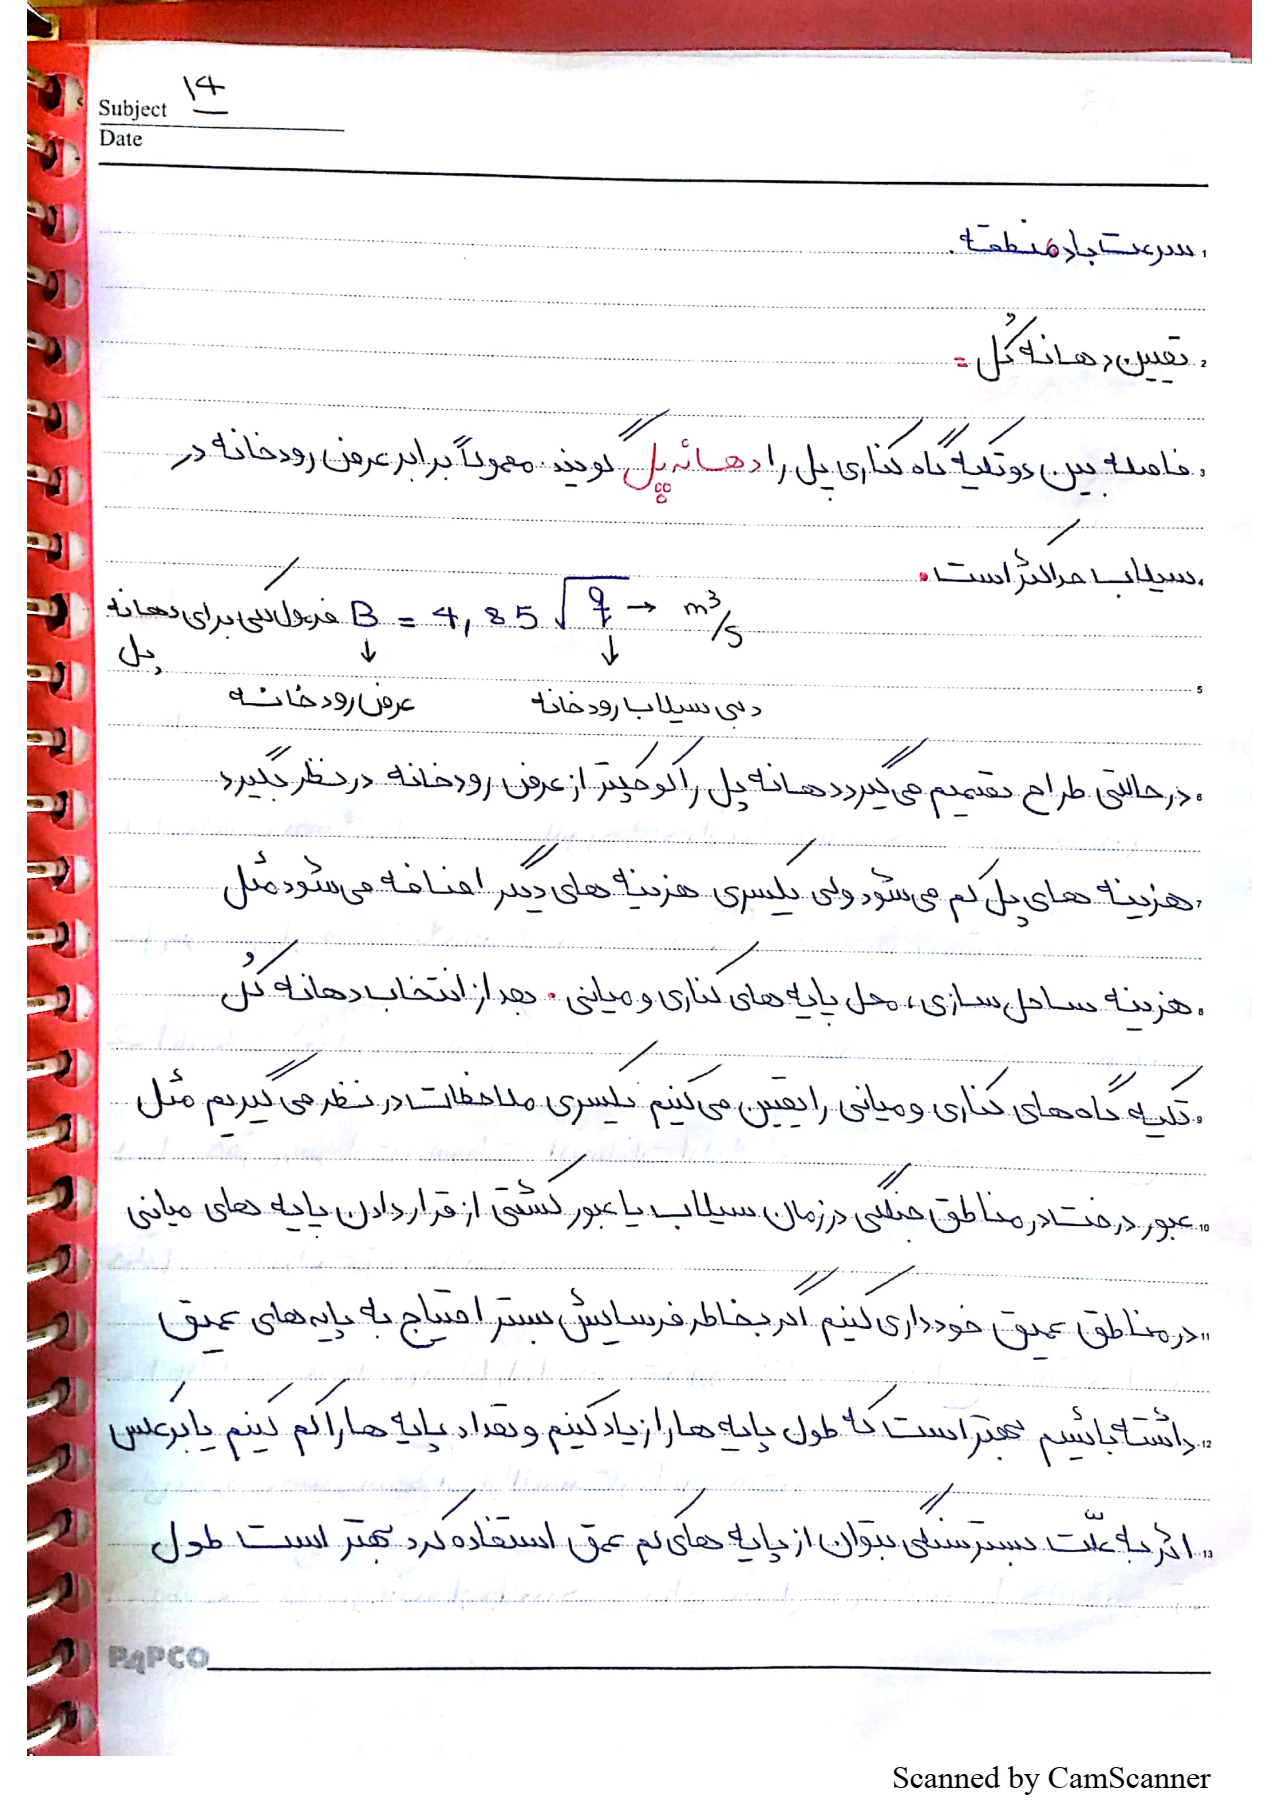 Subject ۱۴
Date
1 سرعت باد منطقه.
2 تعیین دهانه کُل =
3 فاصله بین دو تکیه گاه کناری پل را دهانه پل گویند. معمولاً برابر عرض رودخانه در
سیلاب حداکثر است.
B = 4,85 √q → m³/s فرمول کلی برای دهانه
پل
5
دبی سیلاب رودخانه ↓ عرض رودخانه ↓
6 در حالتی طراح تصمیم می‌گیرد دهانه پل را کوچکتر از عرض رودخانه در نظر بگیرد
7 هزینه های پل کم می‌شود ولی یکسری هزینه های دیگر اضافه می‌شود مثل
8 هزینه ساحل سازی، محل پایه های کناری و میانی. بعد از انتخاب دهانه کُل
9 تکیه گاه های کناری و میانی را تعیین می‌کنیم یکسری ملاحظات در نظر می‌گیریم مثل
10 عبور درخت در مناطق جنگلی در زمان سیلاب یا عبور کشتی از قرار دادن پایه های میانی
11 در مناطق عمیق خودداری کنیم اگر بخاطر فرسایش بستر احتیاج به پایه های عمیق
12 داشته باشیم بهتر است که طول پایه ها را زیاد کنیم و تعداد پایه ها را کم کنیم یا برعکس
13 اگر به علّت بستر سنگی بتوان از پایه های کم عمق استفاده کرد بهتر است طول
PAPCO
Scanned by CamScanner